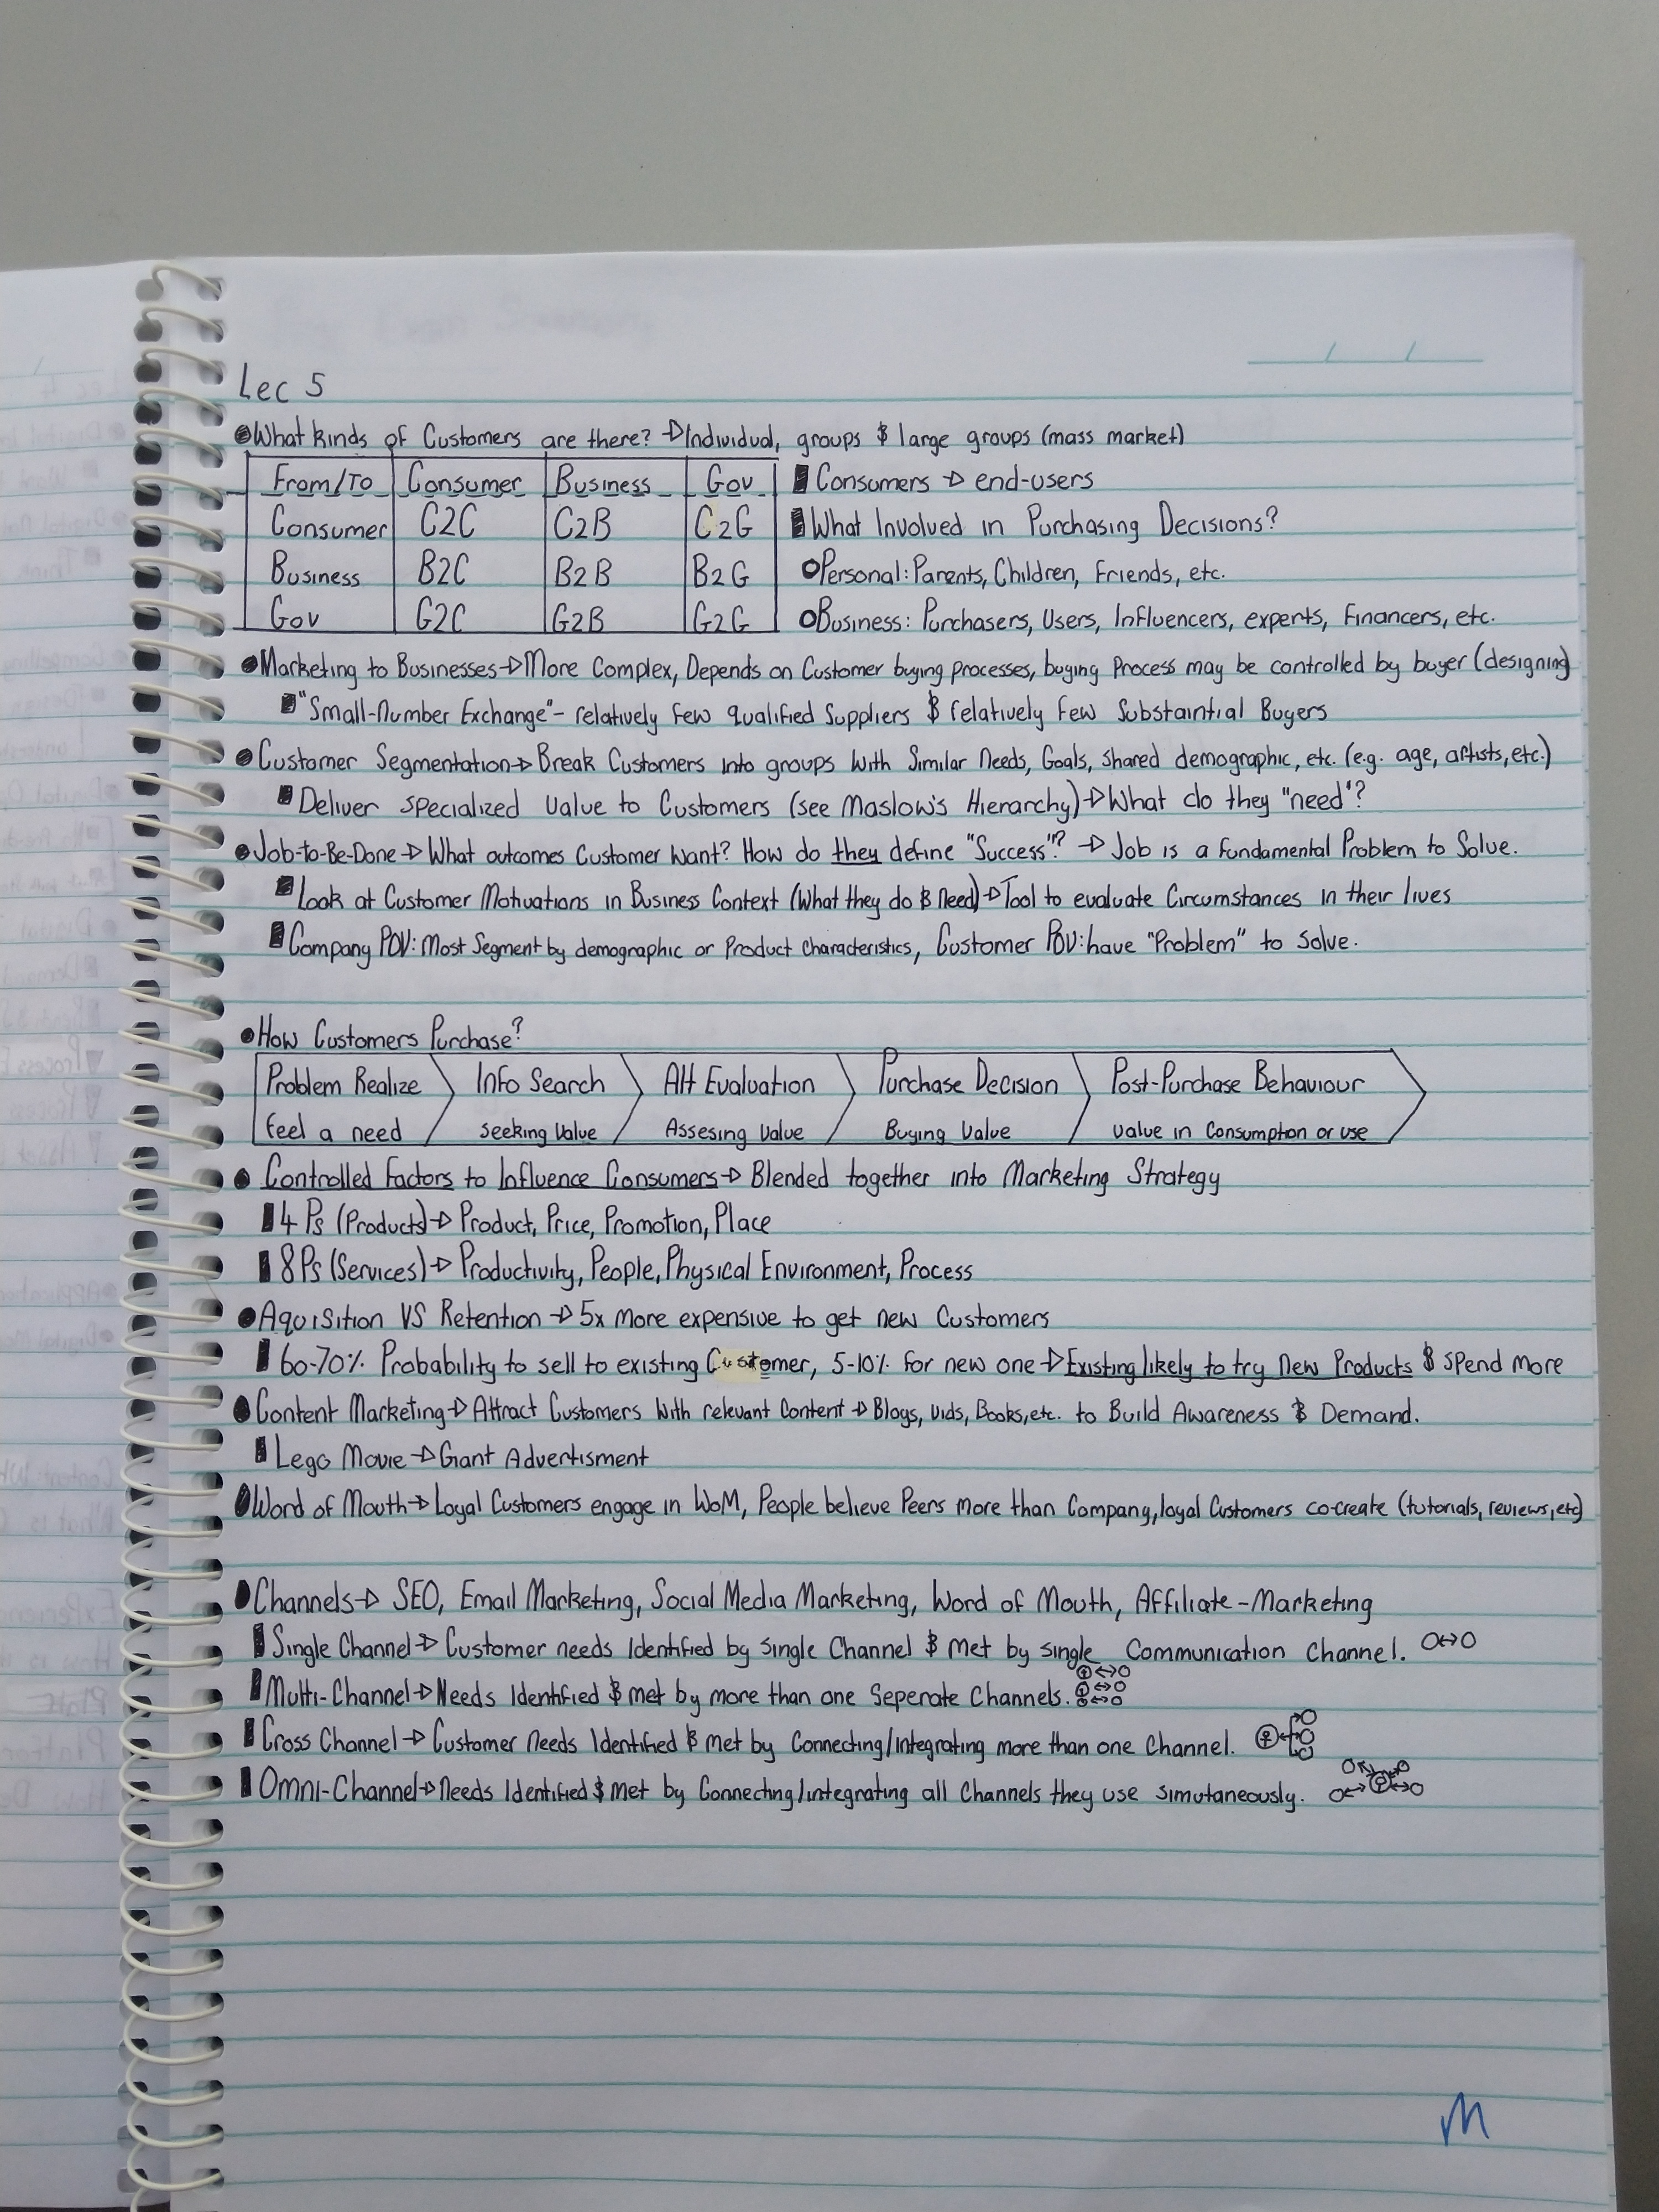 Lec 5
What kinds of Customers are there? → Individual, groups & large groups (mass market)
From/To Consumer Business Gov
Consumer C2C C2B C2G
Business B2C B2B B2G
Gov G2C G2B G2G
Consumers → end-users
What Involved in Purchasing Decisions?
Personal: Parents, Children, Friends, etc.
Business: Purchasers, Users, Influencers, experts, Financers, etc.
Marketing to Businesses → More Complex, Depends on Customer buying processes, buying Process may be controlled by buyer (designing)
"Small-Number Exchange" - relatively Few qualified Suppliers & relatively Few Substaintial Buyers
Customer Segmentation → Break Customers into groups with Similar Needs, Goals, Shared demographic, etc. (e.g. age, artists, etc.)
Deliver specialized value to Customers (see Maslow's Hierarchy) → What do they "need"?
Job-to-Be-Done → What outcomes Customer Want? How do they define "Success"? → Job is a Fundamental Problem to Solve.
Look at Customer Motivations in Business Context (What they do & Need) → Tool to evaluate Circumstances in their lives
Company POV: Most Segment by demographic or Product characteristics, Customer POV: have "Problem" to Solve.
How Customers Purchase?
Problem Realize Info Search Alt Evaluation Purchase Decision Post-Purchase Behaviour
Feel a need Seeking Value Assesing Value Buying Value Value in Consumption or use
Controlled Factors to Influence Consumers → Blended together into Marketing Strategy
4 Ps (Products) → Product, Price, Promotion, Place
8Ps (Services) → Productivity, People, Physical Environment, Process
Aquisition VS Retention → 5x more expensive to get new Customers
60-70% Probability to sell to existing Customer, 5-10% for new one → Existing likely to try new Products & spend more
Content Marketing → Attract Customers with relevant Content → Blogs, vids, Books, etc. to Build Awareness & Demand.
Lego Movie → Giant Advertisment
Word of Mouth → Loyal Customers engage in WoM, People believe Peers more than Company, loyal Customers co-create (tutorials, reviews, etc)
Channels → SEO, Email Marketing, Social Media Marketing, Word of Mouth, Affiliate-Marketing
Single Channel → Customer needs Identified by single Channel & met by single Communication Channel.
Multi-Channel → Needs Identified & met by more than one Seperate Channels.
Cross Channel → Customer Needs Identified & met by Connecting/Integrating more than one Channel.
Omni-Channel → Needs Identified & met by Connecting/integrating all Channels they use simutaneously.
M